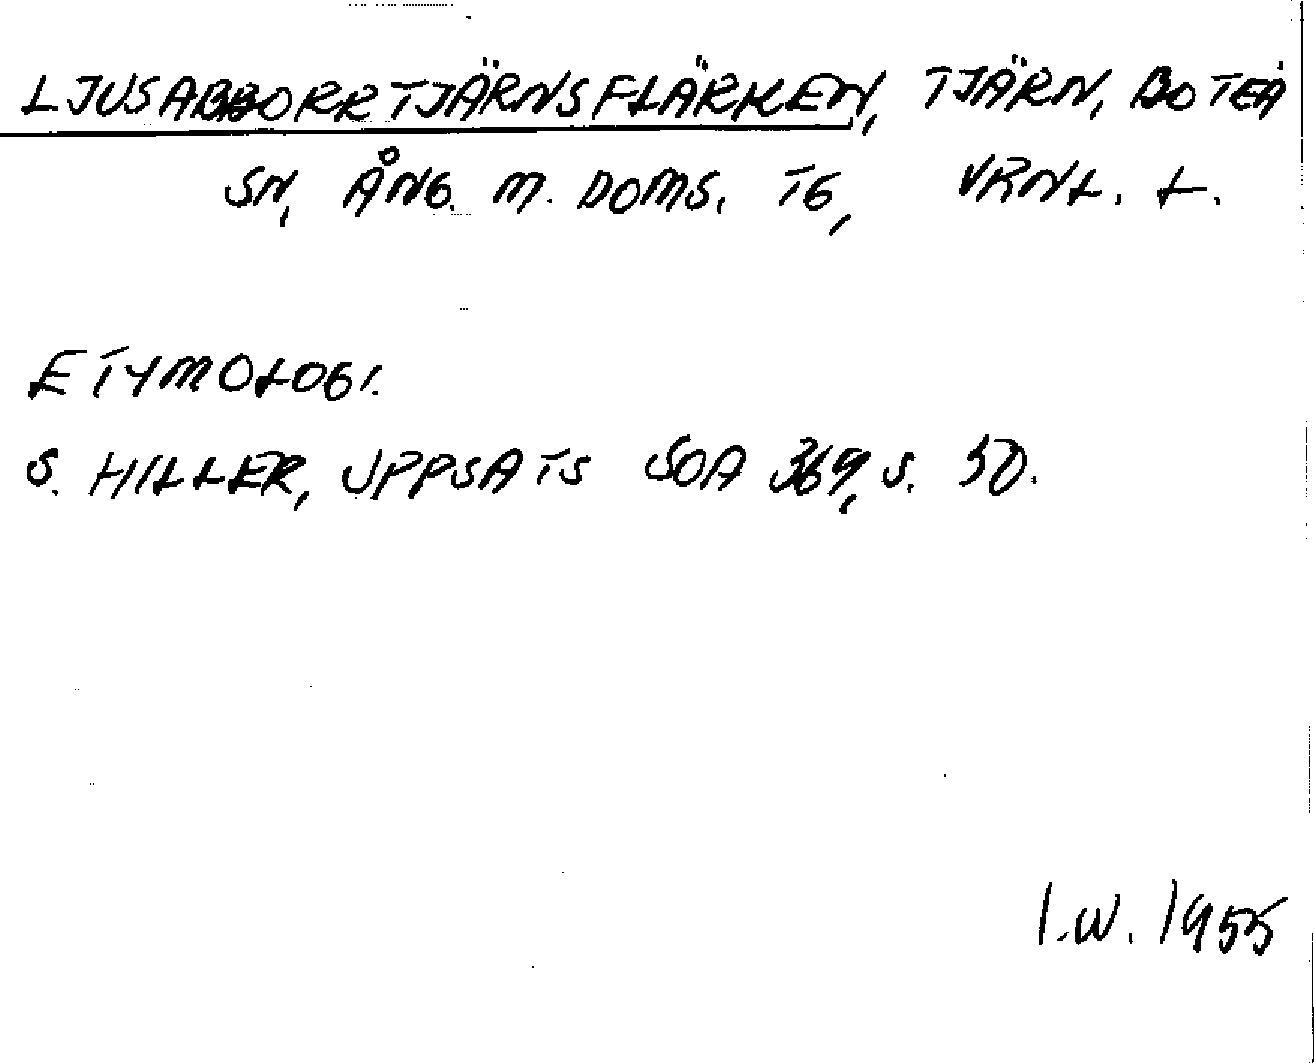 LJUSABBORRTJÄRNSFLÄRKEN, TJÄRN, BOTEÅ
SN, ÅNG. M. DOMS. TG, VRNL. L.
ETYMOLOGI.
S. HILLER, UPPSATS SOA 369, S. 50.
I.W. 1955